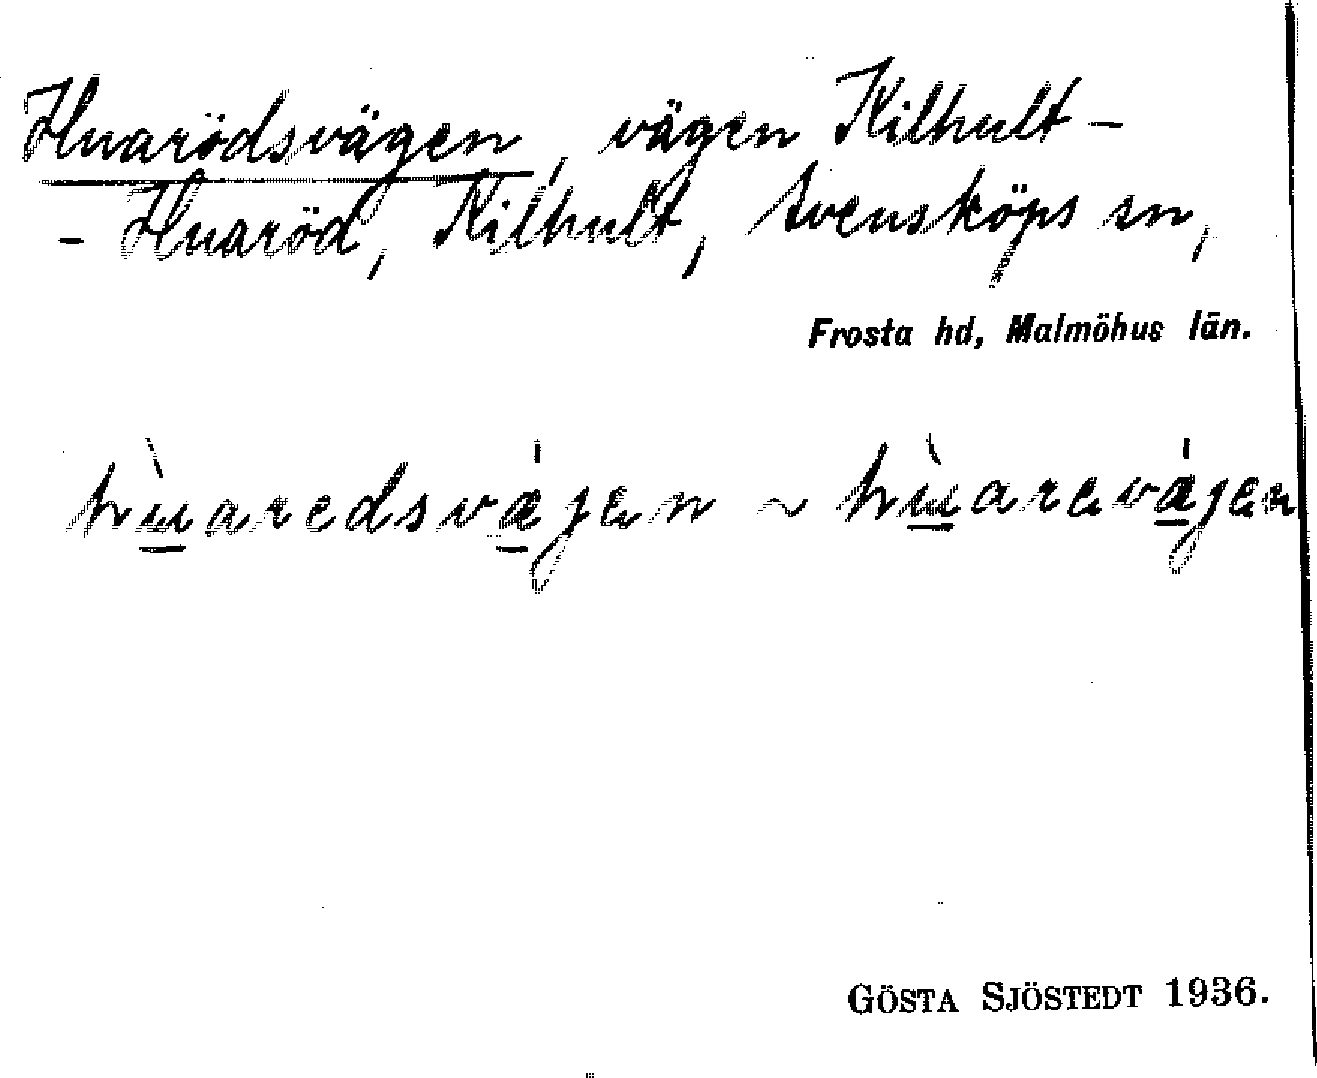 Huarödsvägen, vägen Kilhult -
- Huaröd, Kilhult, Svensköps sn,
Frosta hd, Malmöhus län.
hùaredsvä́gen ~ hùarevä́gen
GÖSTA SJÖSTEDT 1936.